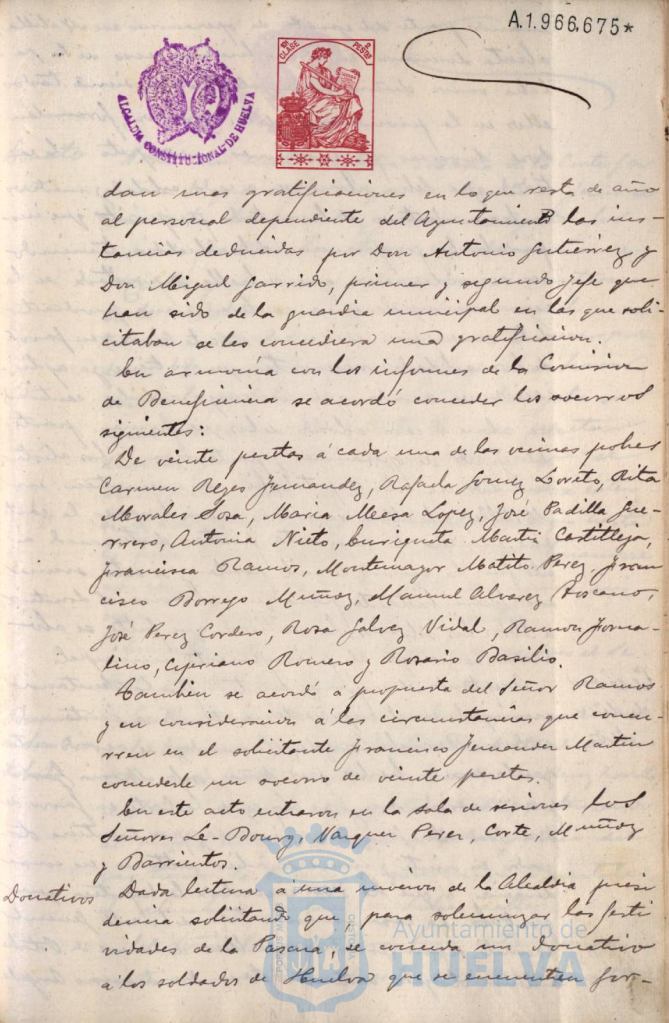 A.1.966,675*
11ª CLASE PESETAS
ALCALDIA CONSTITUCIONAL-DE HUELVA
dan unas gratificaciones en lo que resta de año
al personal dependiente del Ayuntamiento las ins-
tancias deducidas por Don Antonio Gutierrez y
Don Miguel Garrido, primer y segundo Jefe que
han sido de la guardia municipal en las que soli-
citaban se les concediera una gratificacion.
En armonía con los informes de la Comision
de Beneficencia se acordó conceder los socorros
siguientes:
De veinte pesetas á cada una de las vecinas pobres
Carmen Reyes Fernandez, Rafaela Gomez Loreto, Rita
Morales Sosa, Maria Meesa Lopez, José Padilla Gue-
rrero, Antonia Nieto, Enriqueta Martin Castilleja,
Francisca Ramos, Montemayor Matito Perez, Fran-
cisco Borrego Muñoz, Manuel Alvarez Toscano,
José Perez Cordero, Rosa Galvez Vidal, Ramon Forna-
lino, Cipriano Romero y Rosario Basilio.
Tambien se acordó á propuesta del Señor Ramos
y en consideracion á las circunstancias que concu-
rren en el solicitante Francisco Fernandez Martin
concederle un socorro de veinte pesetas.
En este acto entraron en la sala de sesiones los
Señores Le-Bourg, Vazquez Perez, Corte, Muñoz
y Barrientos.
Donativos Dada lectura á una mocion de la Alcaldia presi
dencia solicitando que, para solemnizar las festi
vidades de la Pascua, se conceda un donativo
á los soldados de Huelva que se encuentren for-
Ayuntamiento de
HUELVA